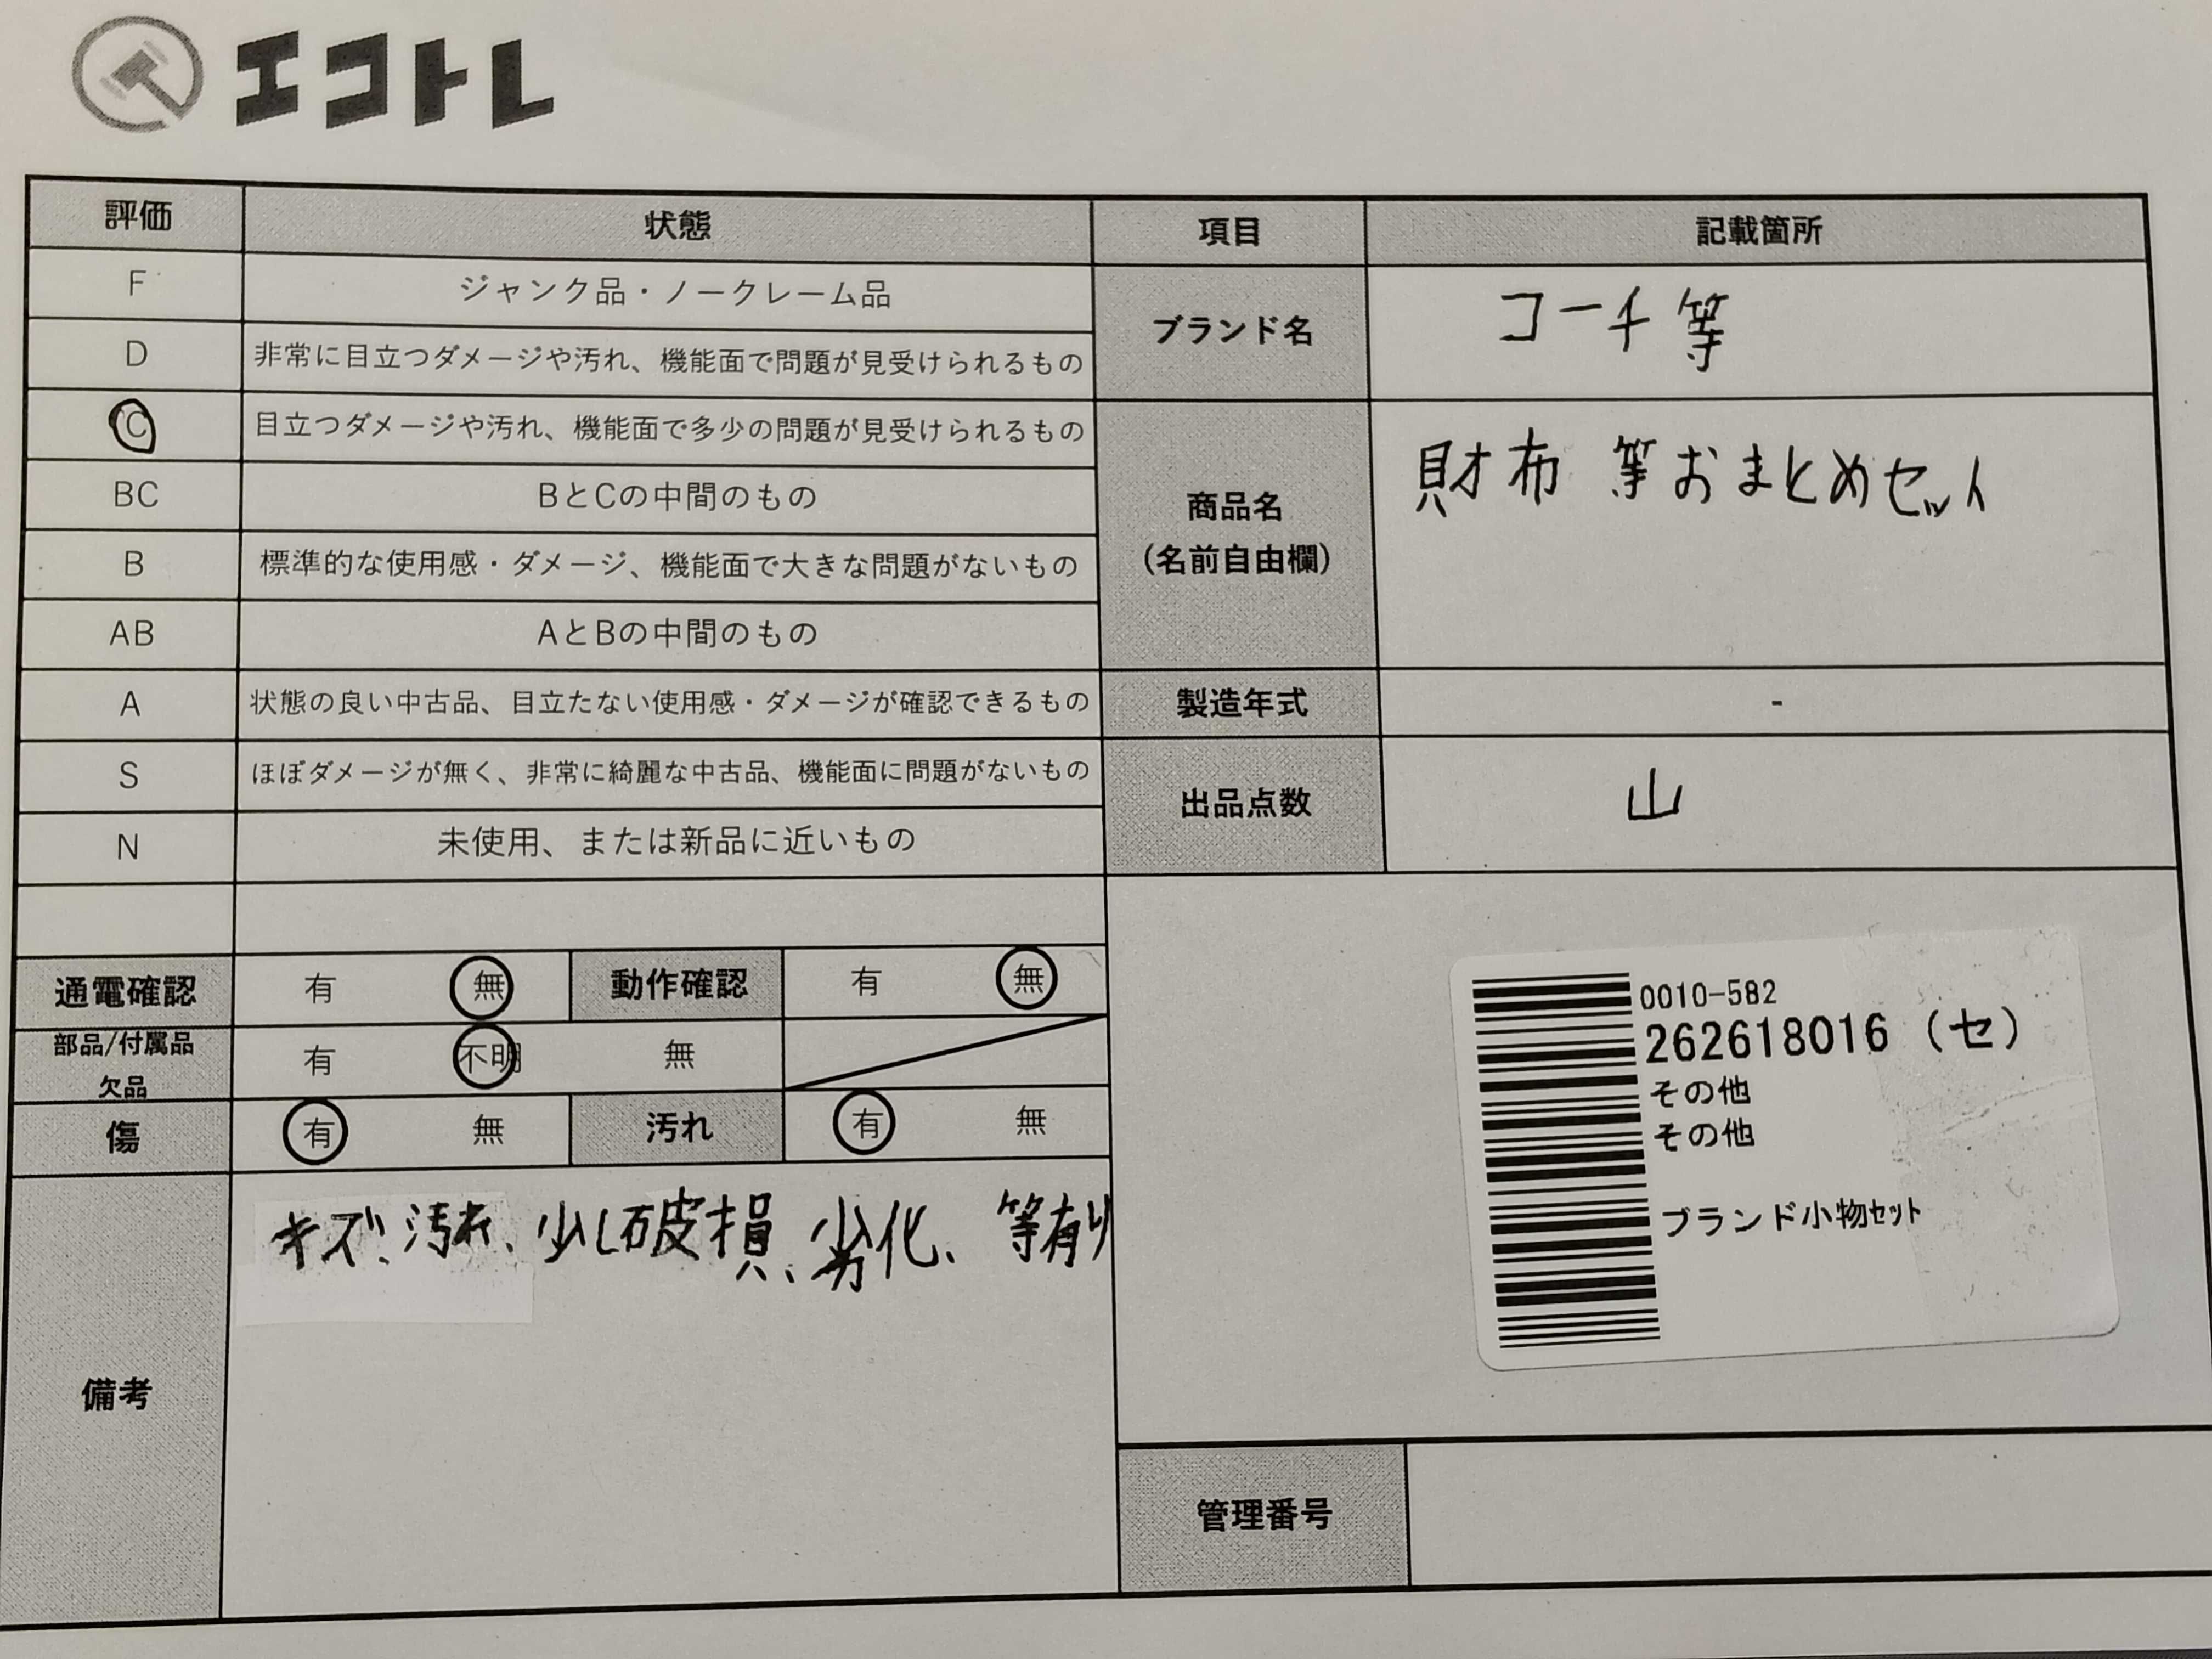 エコトレ
評価 状態 項目 記載箇所
F ジャンク品・ノークレーム品
D 非常に目立つダメージや汚れ、機能面で問題が見受けられるもの
C 目立つダメージや汚れ、機能面で多少の問題が見受けられるもの
BC BとCの中間のもの
B 標準的な使用感・ダメージ、機能面で大きな問題がないもの
AB AとBの中間のもの
A 状態の良い中古品、目立たない使用感・ダメージが確認できるもの
S ほぼダメージが無く、非常に綺麗な中古品、機能面に問題がないもの
N 未使用、または新品に近いもの
ブランド名 コーチ 等
商品名
(名前自由欄)
財布 等おまとめセット
製造年式 -
出品点数 山
通電確認 有 無 動作確認 有 無
部品/付属品
欠品
有 不明 無
傷 有 無 汚れ 有 無
備考
キズ、汚れ、少し破損、劣化、等有り
0010-582
262618016 (セ)
その他
その他
ブランド小物ｾｯﾄ
管理番号